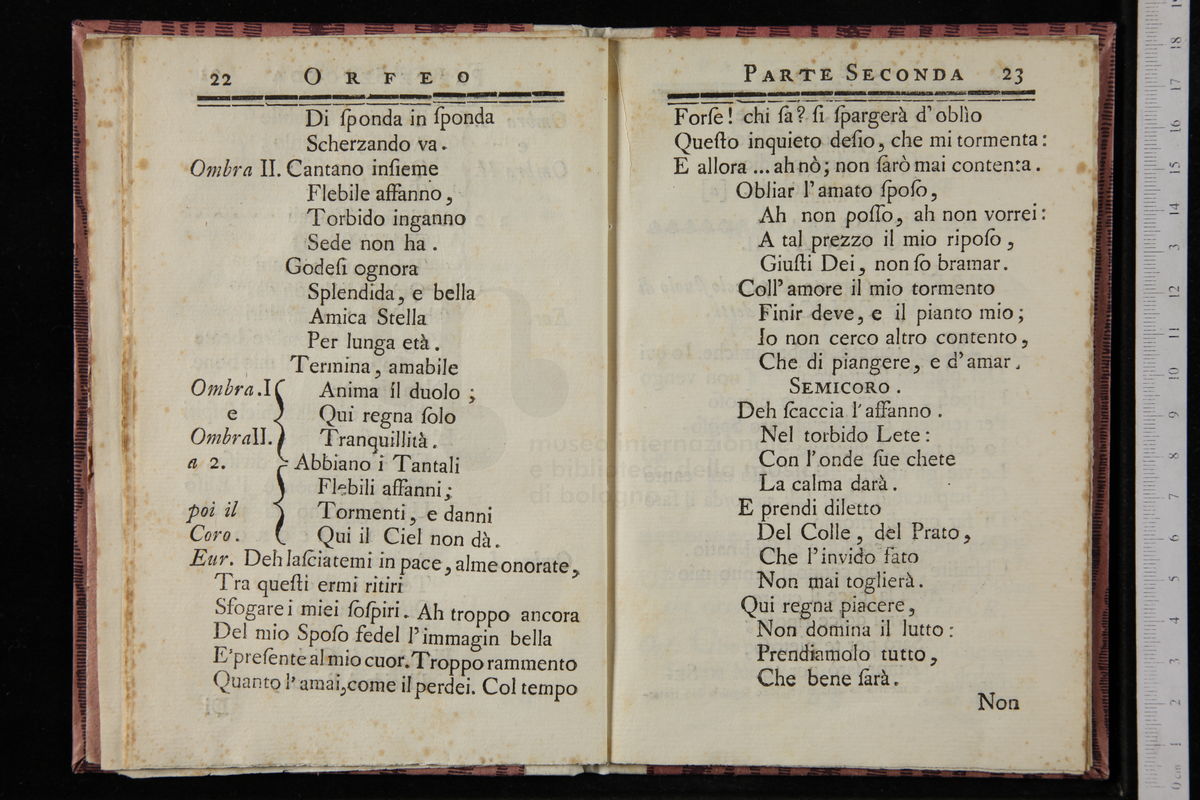 22 ORFEO
Di ſponda in ſponda
Scherzando va.
Ombra II. Cantano inſieme
Flebile affanno,
Torbido inganno
Sede non ha.
Godeſi ognora
Splendida, e bella
Amica Stella
Per lunga età.
Termina, amabile
Ombra.I Anima il duolo;
e Qui regna ſolo
OmbraII. Tranquillità.
a 2. Abbiano i Tantali
Flebili affanni;
poi il Tormenti, e danni
Coro. Qui il Ciel non dà.
Eur. Deh laſciatemi in pace, alme onorate,
Tra queſti ermi ritiri
Sfogare i miei ſoſpiri. Ah troppo ancora
Del mio Spoſo fedel l'immagin bella
E' preſente al mio cuor. Troppo rammento
Quanto l'amai, come il perdei. Col tempo
PARTE SECONDA 23
Forſe! chi ſa? ſi ſpargerà d'oblìo
Queſto inquieto deſio, che mi tormenta:
E allora ... ah nò; non ſarò mai contenta.
Obliar l'amato ſpoſo,
Ah non poſſo, ah non vorrei:
A tal prezzo il mio ripoſo,
Giuſti Dei, non ſo bramar.
Coll'amore il mio tormento
Finir deve, e il pianto mio;
Io non cerco altro contento,
Che di piangere, e d'amar.
SEMICORO.
Deh ſcaccia l'affanno.
Nel torbido Lete:
Con l'onde ſue chete
La calma darà.
E prendi diletto
Del Colle, del Prato,
Che l'invido fato
Non mai toglierà.
Qui regna piacere,
Non domina il lutto:
Prendiamolo tutto,
Che bene ſarà.
Non
museo internazionale
e biblioteca della musica
di bologna
0 cm 1 2 3 4 5 6 7 8 9 10 11 12 13 14 15 16 17 18